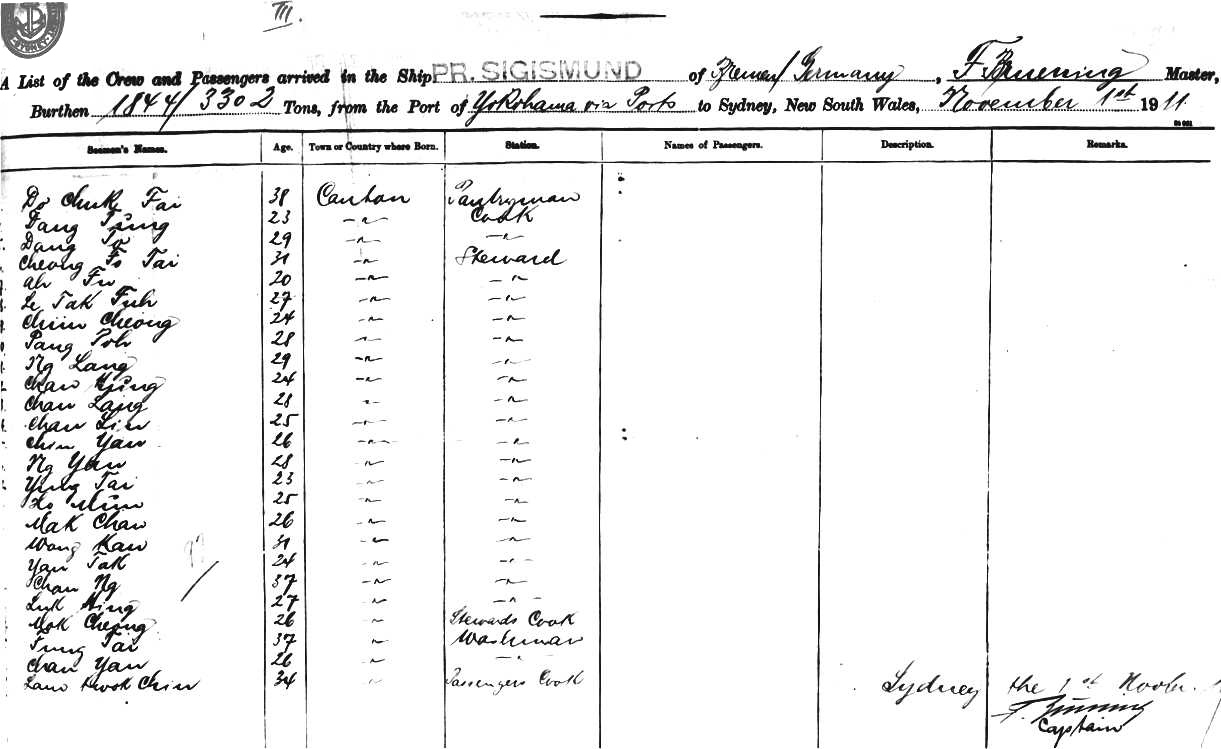 III.
SYDNEY
A List of the Crew and Passengers arrived in the Ship PR. SIGISMUND of Bremen / Germany, F. Bruening Master,
Burthen 1844/3302 Tons, from the Port of Yokohama via Ports to Sydney, New South Wales, November 1st 1911
Seamen's Names. Age. Town or Country where Born. Station. Names of Passengers. Description. Remarks.
Do Chuk Fai 38 Canton Pantryman
Dang Tsung 23 –"– Cook
Dang To 29 –"– –"–
Cheong Fo Tai 31 –"– Steward
Ah Fu 20 –"– –"–
Le Tak Fuh 27 –"– –"–
Chiin Cheong 24 –"– –"–
Pang Poh 28 –"– –"–
Ng Lang 29 –"– –"–
Chan Kung 24 –"– –"–
Chan Lang 28 –"– –"–
Chan Lin 25 –"– –"–
Chin Yan 26 –"– –"–
Ng Yan 28 –"– –"–
Yung Tai 23 –"– –"–
Ho Mun 25 –"– –"–
Mak Chan 26 –"– –"–
Wong Kan 31 –"– –"–
Yan Tak 24 –"– –"–
Chan Ng 37 –"– –"–
Luk Hing 27 –"– –"–
Mok Cheong 26 –"– Stewards Cook
Tung Tai 37 –"– Washman
Chan Yan 26 –"– –"–
Lam Kwok Chin 34 –"– Passengers Cook Sydney the 1st Novbr.
F. Bruening
Captain